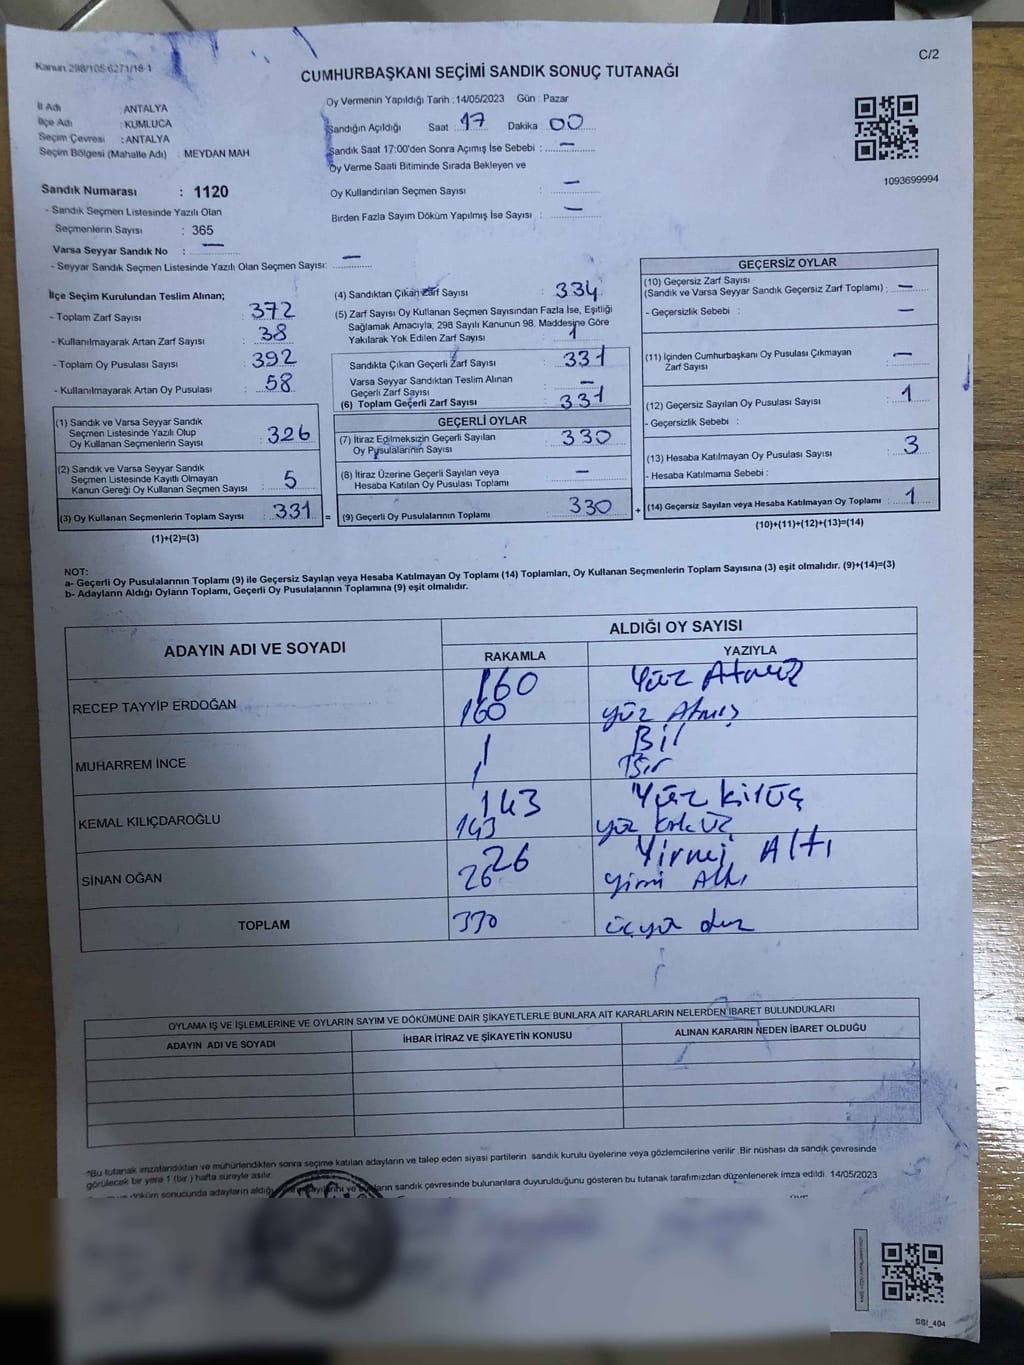 Kanun 298/105-6271/18-1
C/2
CUMHURBAŞKANI SEÇİMİ SANDIK SONUÇ TUTANAĞI
İl Adı : ANTALYA
İlçe Adı : KUMLUCA
Seçim Çevresi : ANTALYA
Seçim Bölgesi (Mahalle Adı) : MEYDAN MAH
Sandık Numarası : 1120
- Sandık Seçmen Listesinde Yazılı Olan
Seçmenlerin Sayısı : 365
Varsa Seyyar Sandık No : —
- Seyyar Sandık Seçmen Listesinde Yazılı Olan Seçmen Sayısı: —
Oy Vermenin Yapıldığı Tarih : 14/05/2023 Gün : Pazar
Sandığın Açıldığı Saat 17 Dakika 00
Sandık Saat 17:00'den Sonra Açımış İse Sebebi : —
Oy Verme Saati Bitiminde Sırada Bekleyen ve
Oy Kullandırılan Seçmen Sayısı : —
Birden Fazla Sayım Döküm Yapılmış İse Sayısı : —
1093699994
İlçe Seçim Kurulundan Teslim Alınan;
- Toplam Zarf Sayısı : 372
- Kullanılmayarak Artan Zarf Sayısı : 38
- Toplam Oy Pusulası Sayısı : 392
- Kullanılmayarak Artan Oy Pusulası : 58
(1) Sandık ve Varsa Seyyar Sandık
Seçmen Listesinde Yazılı Olup
Oy Kullanan Seçmenlerin Sayısı : 326
(2) Sandık ve Varsa Seyyar Sandık
Seçmen Listesinde Kayıtlı Olmayan
Kanun Gereği Oy Kullanan Seçmen Sayısı : 5
(3) Oy Kullanan Seçmenlerin Toplam Sayısı : 331 =
(1)+(2)=(3)
(4) Sandıktan Çıkan Zarf Sayısı : 334
(5) Zarf Sayısı Oy Kullanan Seçmen Sayısından Fazla İse, Eşitliği
Sağlamak Amacıyla, 298 Sayılı Kanunun 98. Maddesine Göre
Yakılarak Yok Edilen Zarf Sayısı : 1
Sandıkta Çıkan Geçerli Zarf Sayısı : 331
Varsa Seyyar Sandıktan Teslim Alınan
Geçerli Zarf Sayısı : —
(6) Toplam Geçerli Zarf Sayısı : 331
GEÇERLİ OYLAR
(7) İtiraz Edilmeksizin Geçerli Sayılan
Oy Pusulalarının Sayısı : 330
(8) İtiraz Üzerine Geçerli Sayılan veya
Hesaba Katılan Oy Pusulası Toplamı : —
(9) Geçerli Oy Pusulalarının Toplamı : 330 +
GEÇERSİZ OYLAR
(10) Geçersiz Zarf Sayısı
(Sandık ve Varsa Seyyar Sandık Geçersiz Zarf Toplamı) : —
- Geçersizlik Sebebi : —
(11) İçinden Cumhurbaşkanı Oy Pusulası Çıkmayan
Zarf Sayısı : —
(12) Geçersiz Sayılan Oy Pusulası Sayısı : 1
- Geçersizlik Sebebi :
(13) Hesaba Katılmayan Oy Pusulası Sayısı : 3
- Hesaba Katılmama Sebebi :
(14) Geçersiz Sayılan veya Hesaba Katılmayan Oy Toplamı : 1
(10)+(11)+(12)+(13)=(14)
NOT:
a- Geçerli Oy Pusulalarının Toplamı (9) ile Geçersiz Sayılan veya Hesaba Katılmayan Oy Toplamı (14) Toplamları, Oy Kullanan Seçmenlerin Toplam Sayısına (3) eşit olmalıdır. (9)+(14)=(3)
b- Adayların Aldığı Oyların Toplamı, Geçerli Oy Pusulalarının Toplamına (9) eşit olmalıdır.
ADAYIN ADI VE SOYADI
ALDIĞI OY SAYISI
RAKAMLA YAZIYLA
RECEP TAYYİP ERDOĞAN
160 Yüz Atmış
160 yüz Atmış
MUHARREM İNCE
1 Bir
1 Bir
KEMAL KILIÇDAROĞLU
143 Yüz kırküç
143 yüz kırk üç
SİNAN OĞAN
26 Yirmi Altı
26 yirmi Altı
TOPLAM 330 üçyüz
OYLAMA İŞ VE İŞLEMLERİNE VE OYLARIN SAYIM VE DÖKÜMÜNE DAİR ŞİKAYETLERLE BUNLARA AİT KARARLARIN NELERDEN İBARET BULUNDUKLARI
ADAYIN ADI VE SOYADI İHBAR İTİRAZ VE ŞİKAYETİN KONUSU ALINAN KARARIN NEDEN İBARET OLDUĞU
*Bu tutanak imzalandıktan ve mühürlendikten sonra seçime katılan adayların ve talep eden siyasi partilerin sandık kurulu üyelerine veya gözlemcilerine verilir. Bir nüshası da sandık çevresinde
görülecek bir yere 1 (bir.) hafta süreyle asılır.
döküm sonucunda adayların aldığı sandık çevresinde bulunanlara duyurulduğunu gösteren bu tutanak tarafımızdan düzenlenerek imza edildi. 14/05/2023
SSI_404